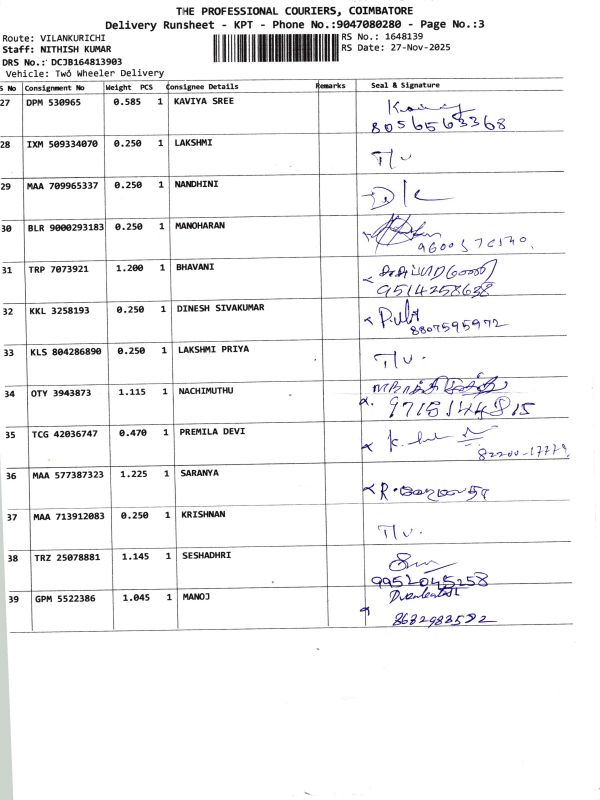 THE PROFESSIONAL COURIERS, COIMBATORE
Delivery Runsheet - KPT - Phone No.:9047080280 - Page No.:3
Route: VILANKURICHI RS No.: 1648139
Staff: NITHISH KUMAR RS Date: 27-Nov-2025
DRS No.: DCJB164813903
Vehicle: Two Wheeler Delivery
S No Consignment No Weight PCS Consignee Details Remarks Seal & Signature
27 DPM 530965 0.585 1 KAVIYA SREE
8056563368
28 IXM 509334070 0.250 1 LAKSHMI T/v
29 MAA 709965337 0.250 1 NANDHINI D/C
30 BLR 9000293183 0.250 1 MANOHARAN
31 TRP 7073921 1.200 1 BHAVANI
9514258638
32 KKL 3258193 0.250 1 DINESH SIVAKUMAR
8807595972
33 KLS 804286890 0.250 1 LAKSHMI PRIYA T/v.
34 OTY 3943873 1.115 1 NACHIMUTHU
9718144815
35 TCG 42036747 0.470 1 PREMILA DEVI
82200-17779
36 MAA 577387323 1.225 1 SARANYA
37 MAA 713912083 0.250 1 KRISHNAN T/v.
38 TRZ 25078881 1.145 1 SESHADHRI
9952045258
39 GPM 5522386 1.045 1 MANOJ
8682983582